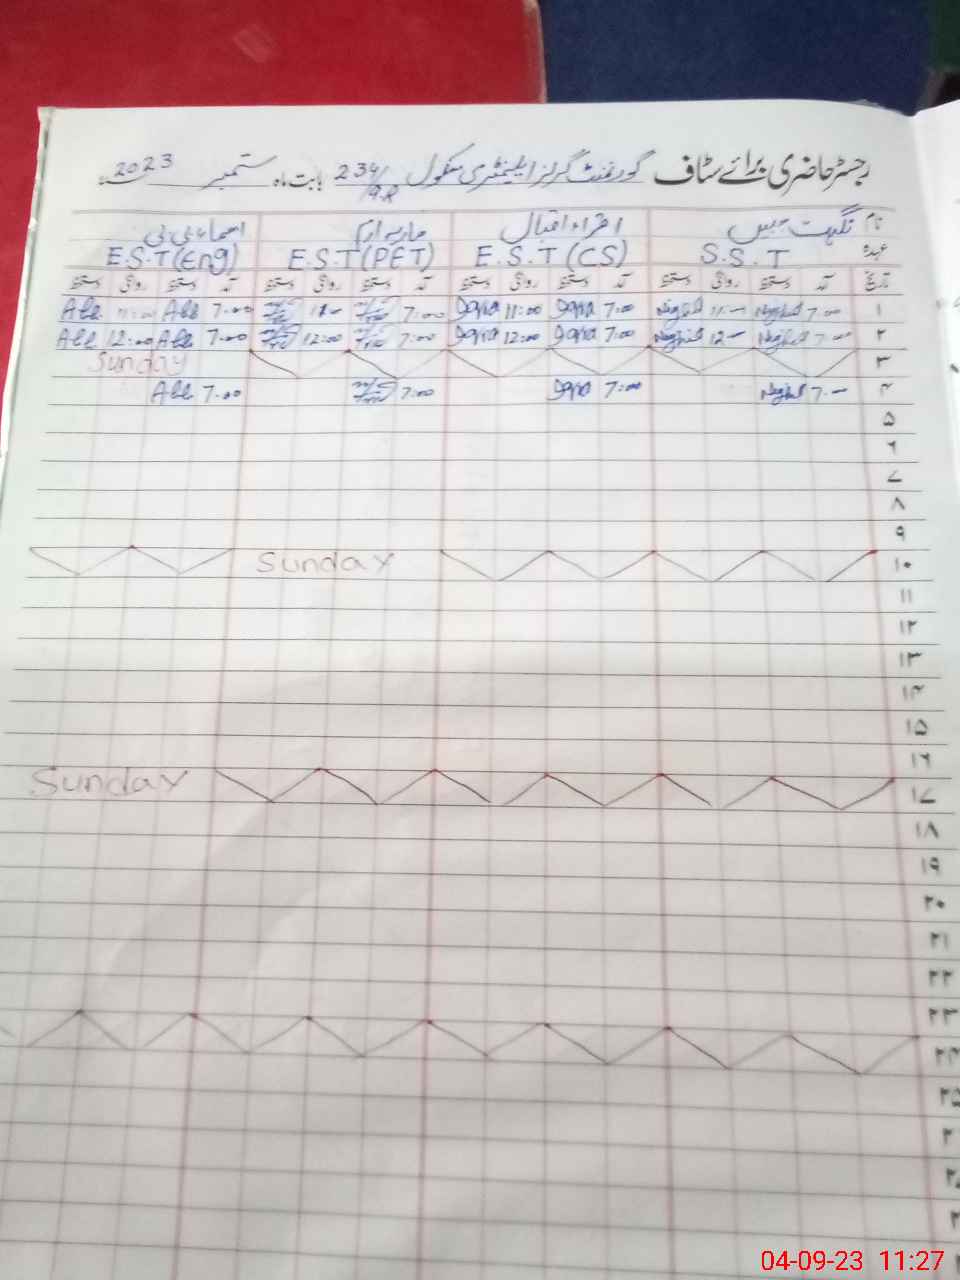 رجسٹر حاضری برائے سٹاف گورنمنٹ گرلز ایلیمنٹری سکول 234/9.R بابت ماہ ستمبر 2023ء
نام نگہت جبیں اقراء اقبال ماریہ ارم اسماء بی بی
عہدہ S.S.T E.S.T (CS) E.S.T (PET) E.S.T (Eng)
تاریخ آمد دستخط روانگی دستخط آمد دستخط روانگی دستخط آمد دستخط روانگی دستخط آمد دستخط روانگی دستخط
۱ 7:00 Nighat 11:00 Nighat 7:00 Iqra 11:00 Iqra 7:00 11:00 7:00 Abb 11:00 Abb
۲ 7:00 Nighat 12:00 Nighat 7:00 Iqra 12:00 Iqra 7:00 12:00 7:00 Abb 12:00 Abb
۳ Sunday
۴ 7:00 Nighat 7:00 Iqra 7:00 7:00 Abb
۵
۶
۷
۸
۹
۱۰ Sunday
۱۱
۱۲
۱۳
۱۴
۱۵
۱۶
۱۷ Sunday
۱۸
۱۹
۲۰
۲۱
۲۲
۲۳
۲۴
۲۵
04-09-23 11:27